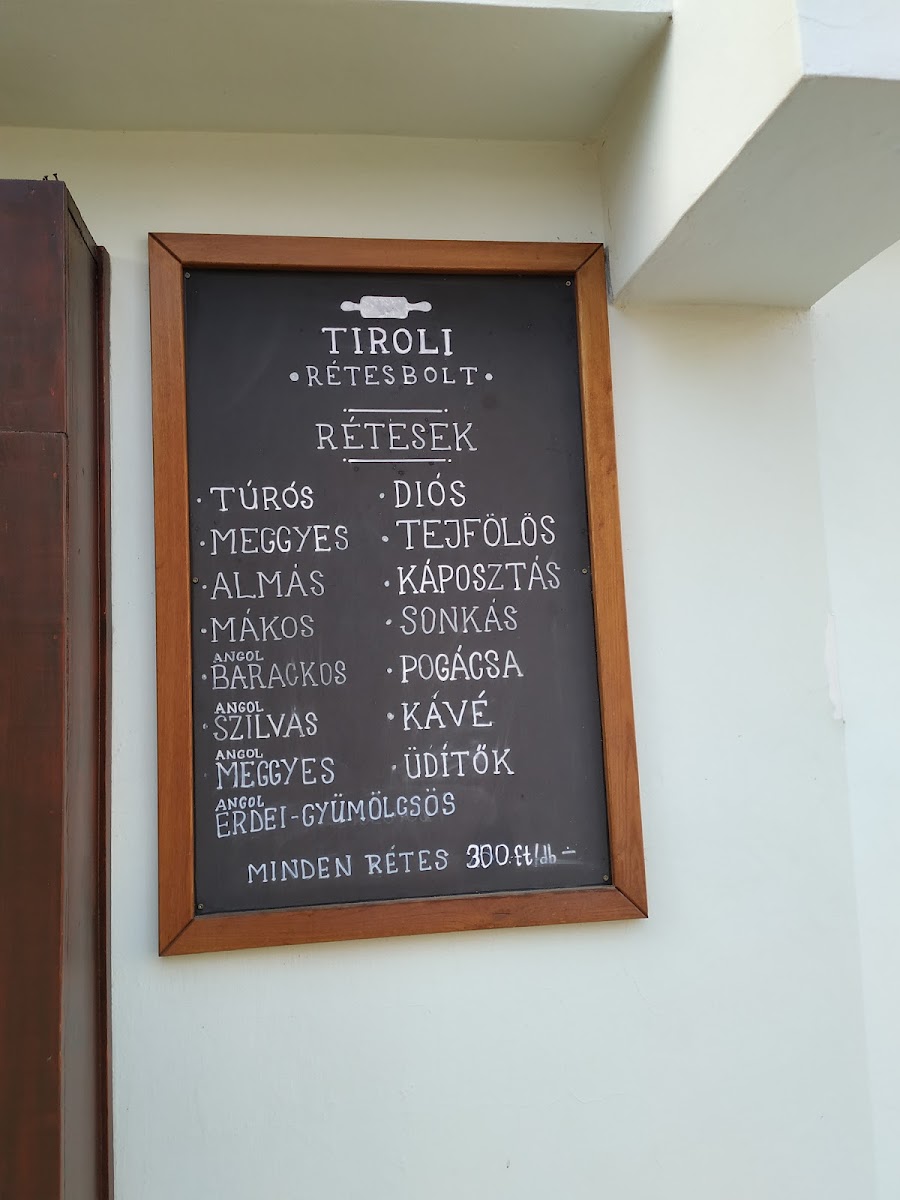 TIROLI
•RÉTESBOLT•
RÉTESEK
•TÚRÓS
•MEGGYES
•ALMÁS
•MÁKOS
ANGOL
•BARACKOS
ANGOL
SZILVÁS
ANGOL
MEGGYES
ANGOL
ERDEI-GYÜMÖLCSÖS
•DIÓS
•TEJFÖLÖS
•KÁPOSZTÁS
•SONKÁS
•POGÁCSA
•KÁVÉ
•ÜDÍTŐK
MINDEN RÉTES 300.ft/db-